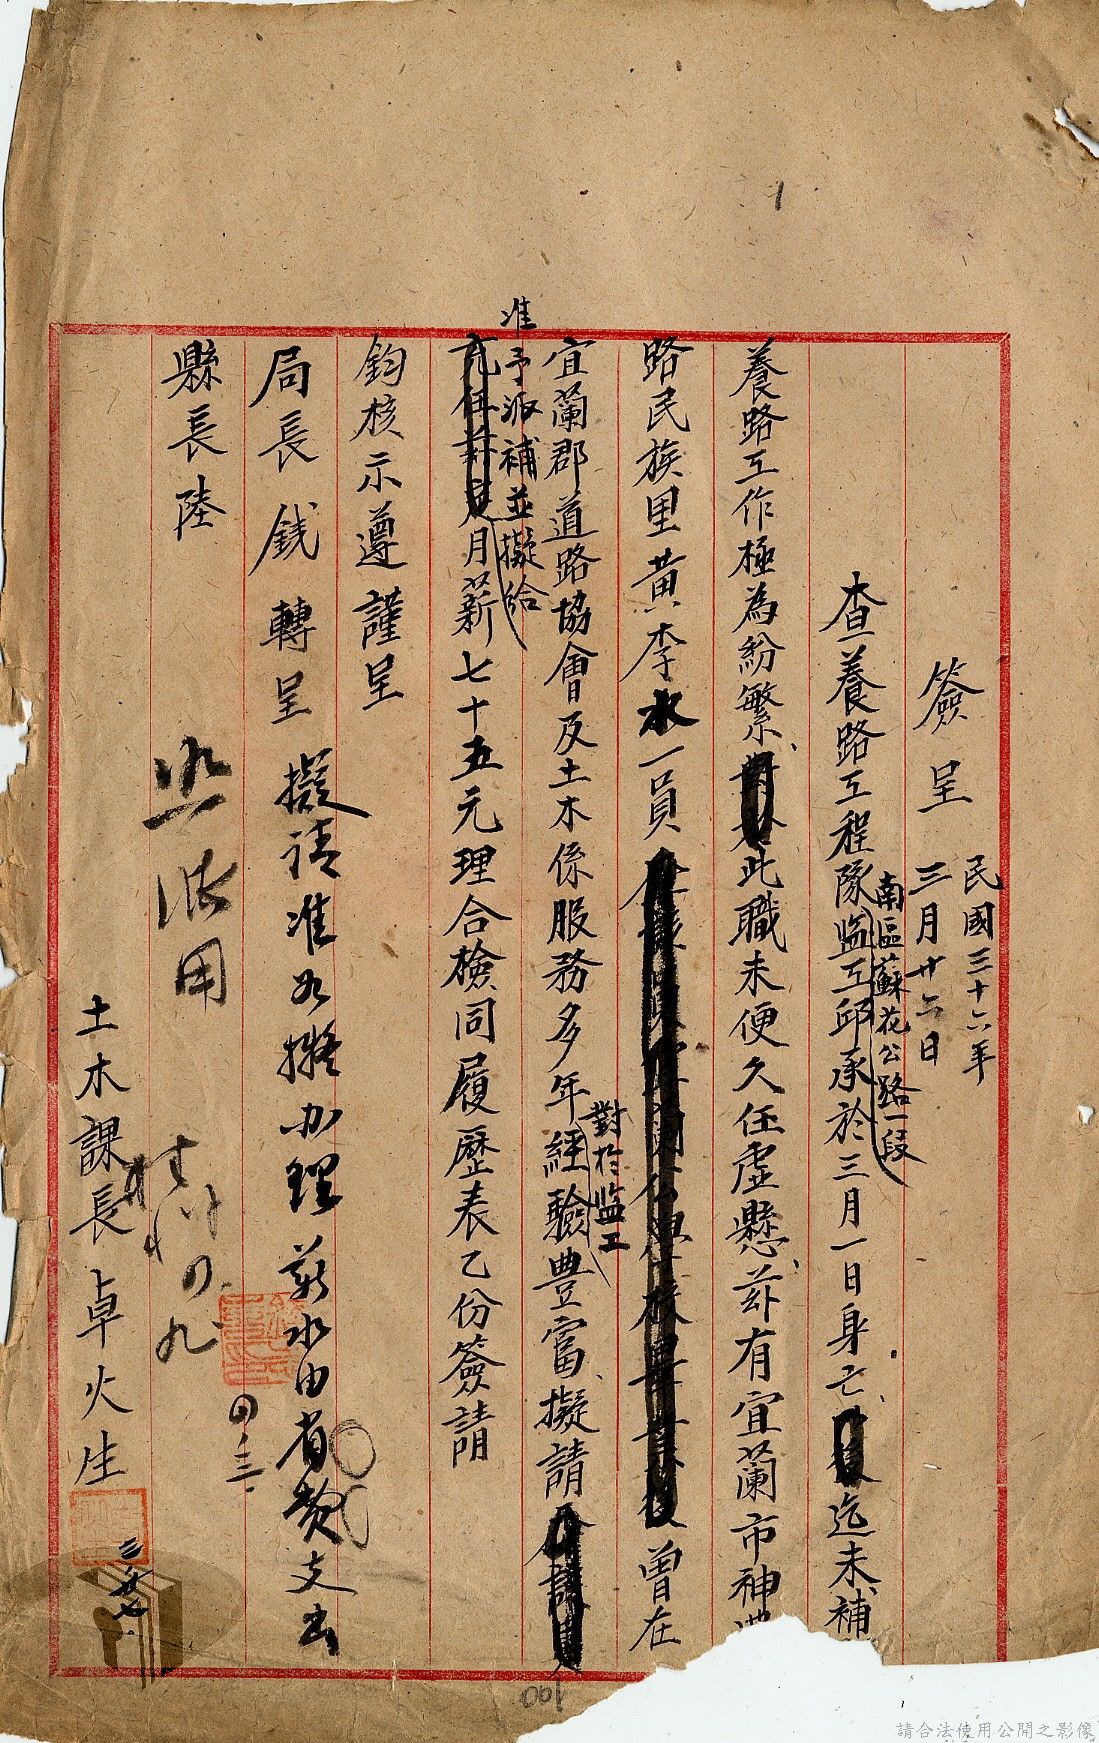 簽呈
民國三十六年
三月廿六日
查養路工程隊監工邱承於三月一日身亡迄未補
南區蘇花公路一段
養路工作極為紛繁此職未便久任虛懸茲有宜蘭市神農
路民族里黃李水一員曾在
宜蘭郡道路協會及土木係服務多年經驗豊富擬請
對於監工
准予派補並擬給
月薪七十五元理合檢同履歷表乙份簽請
鈞核示遵謹呈
局長錢轉呈
擬請准如擬办理薪水由省費支出
四、三
縣長陸
照派用
四九
土木課長卓火生
三、廿七
001
請合法使用公開之影像